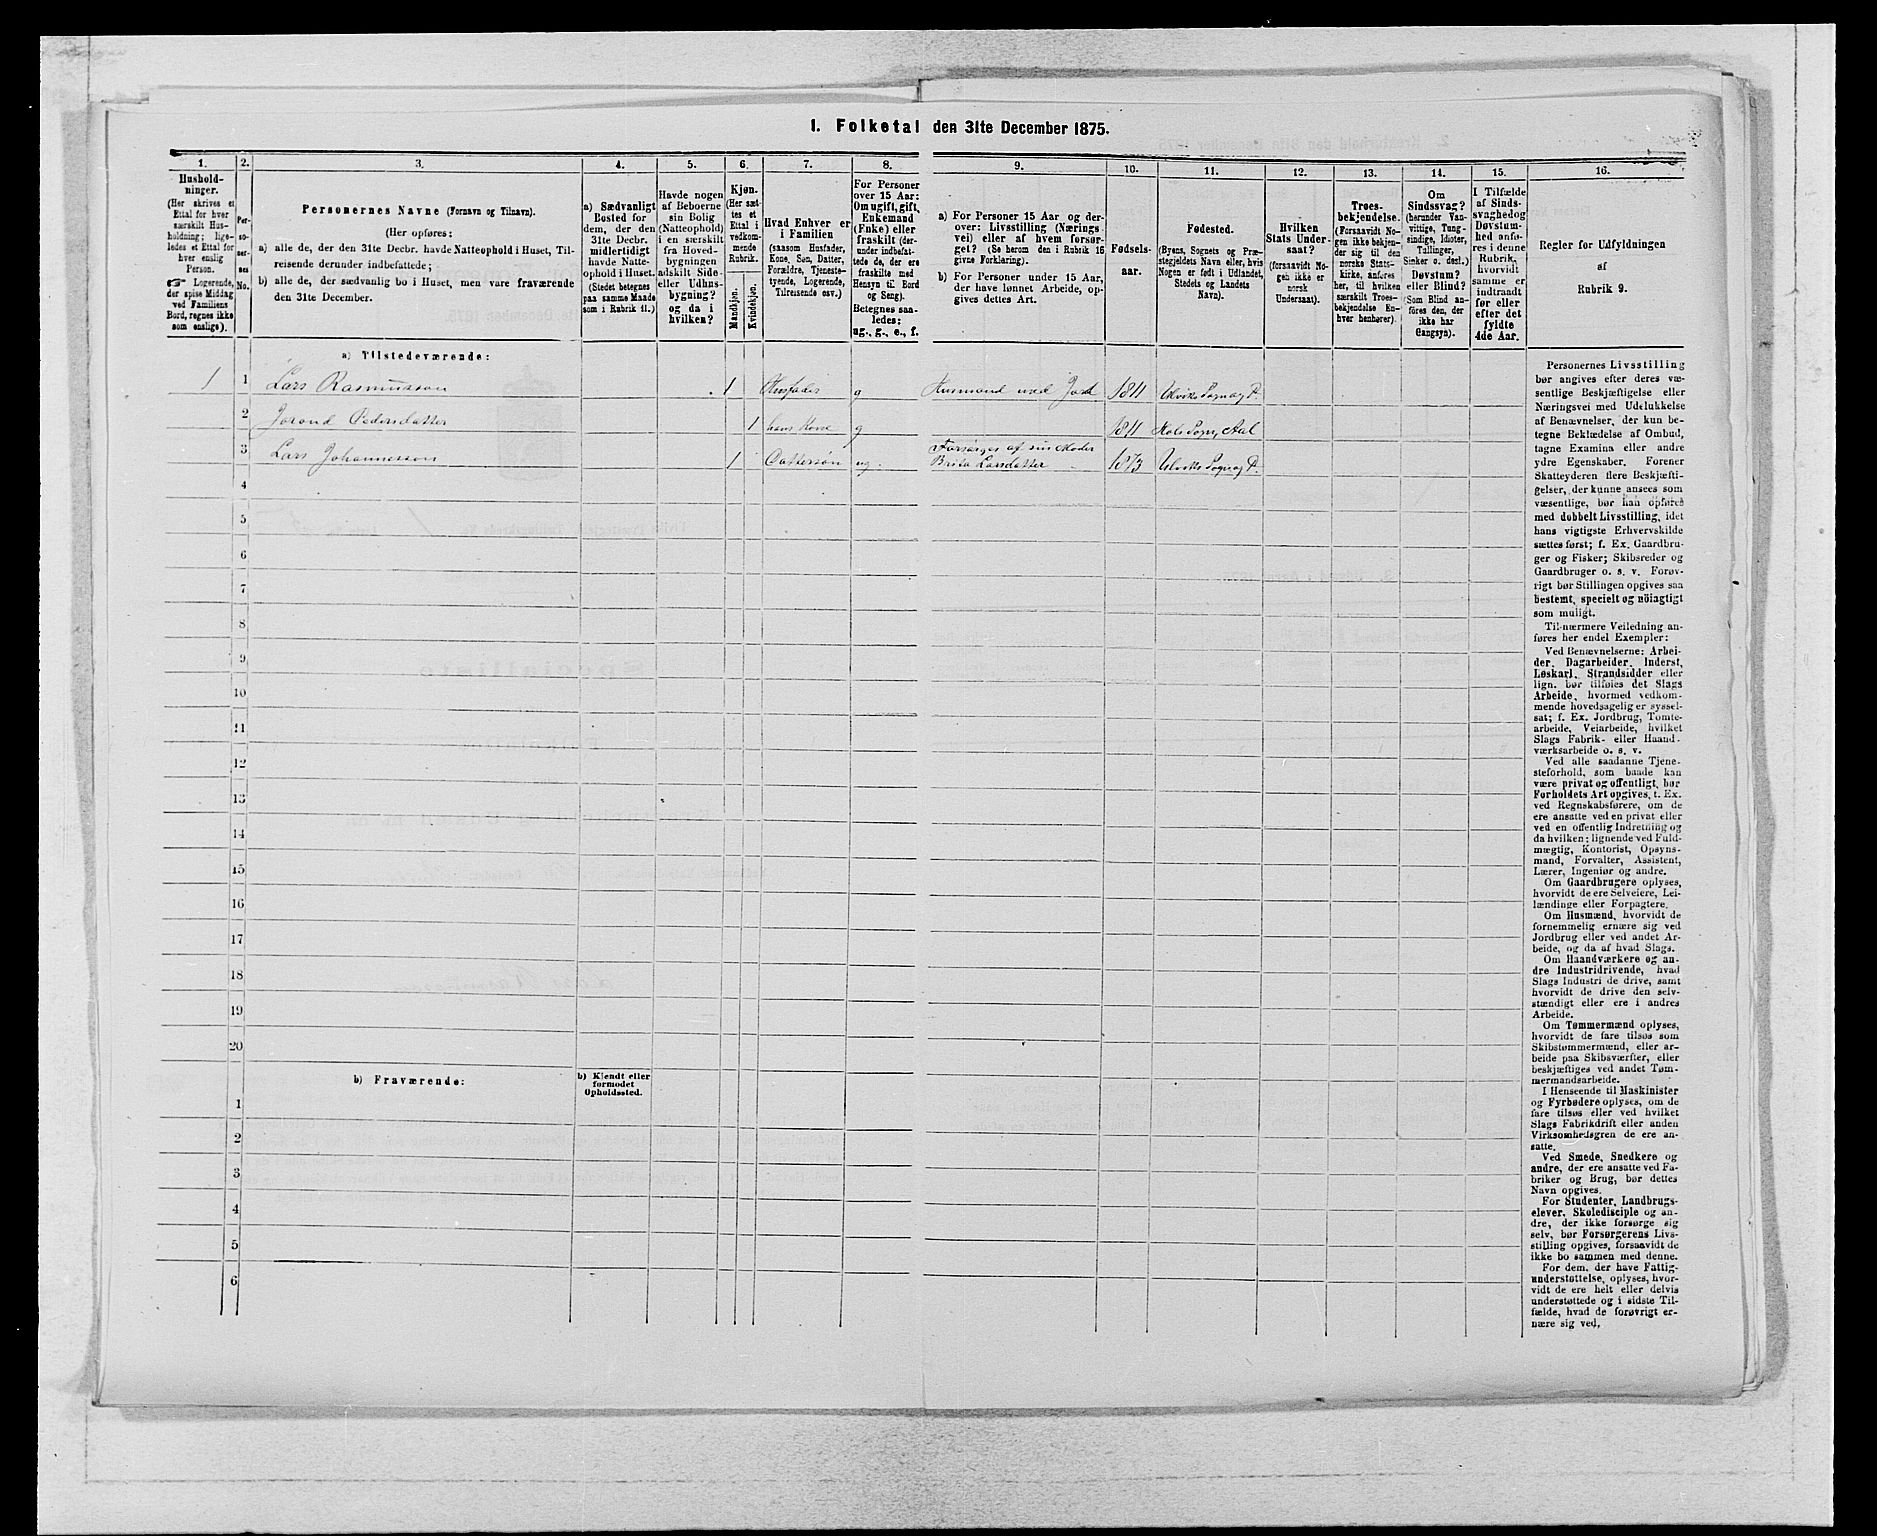 I. Folketal den 31te December 1875.
1.
2.
3.
4.
5.
6.
7.
8.
9.
10.
11.
12.
13.
14.
15.
16.
Hushold-
ninger.
(Her skrives et
Ettal for hver
særskilt Hus-
holdning; lige-
ledes et Ettal for
hver enslig
Person.
☞ Logerende,
der spise Middag
ved Familiens
Bord, regnes ikke
som enslige).
Per-
so-
ner-
nes
No.
Personernes Navne (Fornavn og Tilnavn).
(Her opføres:
a) alle de, der den 31te Decbr. havde Natteophold i Huset, Til-
reisende derunder indbefattede;
b) alle de, der sædvanlig bo i Huset, men vare fraværende
den 31te December.
a) Sædvanligt
Bosted for
dem, der den
31te Decbr.
midlertidigt
havde Natte-
ophold i Huset.
(Stedet betegnes
paa samme Maade
som i Rubrik 11.)
Havde nogen
af Beboerne
sin Bolig
(Natteophold)
i en særskilt
fra Hoved-
bygningen
adskilt Side-
eller Udhus-
bygning?
og da i
hvilken?
Kjøn.
(Her sæt-
tes et
Ettal i
vedkom-
mende
Rubrik.
Mandkjøn.
Kvindekjøn.
Hvad Enhver er
i Familien
(saasom Husfader,
Kone, Søn, Datter,
Forældre, Tjeneste-
tyende, Logerende,
Tilreisende osv.)
For Personer
over 15 Aar:
Om ugift, gift,
Enkemand
(Enke) eller
fraskilt (der-
under indbefat-
tede de, der ere
fraskilte med
Hensyn til Bord
og Seng).
Betegnes saa-
ledes:
ug., g., e., f.
a) For Personer 15 Aar og der-
over: Livsstilling (Nærings-
vei) eller af hvem forsør-
get? (Se herom den i Rubrik 16
givne Forklaring).
b) For Personer under 15 Aar,
der have lønnet Arbeide, op-
gives dettes Art.
Fødsels-
aar.
Fødested.
(Byens, Sognets og Præ-
stegjeldets Navn eller, hvis
Nogen er født i Udlandet,
Stedets og Landets
Navn).
Hvilken
Stats Under-
saat?
(forsaavidt No-
gen ikke er
norsk
Undersaat).
Troes-
bekjendelse.
(Forsaavidt No-
gen ikke bekjen-
der sig til den
norske Stats-
kirke, anføres
her, til hvilken
særskilt Troes-
bekjendelse En-
hver henhører).
Om
Sindssvag?
(herunder Van-
vittige, Tung-
sindige, Idioter,
Tullinger,
Sinker o. desl.)
Døvstum?
eller Blind?
(Som Blind an-
føres den, der
ikke har
Gangsyn).
I Tilfælde
af Sinds-
svaghed og
Døvstum-
hed anfø-
res i denne
Rubrik,
hvorvidt
samme er
indtraadt
før eller
efter det
fyldte
4de Aar.
Regler for Udfyldningen
af
Rubrik 9.
a) Tilstedeværende:
1 1 Lars Rasmusson 1 Husfader g Husmand med Jord 1811 Ulviks Sogn og P.
2 Jorand Pedersdatter 1 hans Kone g 1811 Hols Sogn, Aal
3 Lars Johannesson 1 Dattersøn ug. Forsørges af sin Moder
Brita Larsdatter 1873 Ulviks Sogn og P.
4
5
6
7
8
9
10
11
12
13
14
15
16
17
18
19
20
b) Fraværende:
b) Kjendt eller
formodet
Opholdssted.
1
2
3
4
5
6
Personernes Livsstilling
bør angives efter deres væ-
sentlige Beskjæftigelse eller
Næringsvei med Udelukkelse
af Benævnelser, der kun be-
tegne Beklædelse af Ombud,
tagne Examina eller andre
ydre Egenskaber. Forener
Skatteyderen flere Beskjæfti-
gelser, der kunne ansees som
væsentlige, bør han opføres
med dobbelt Livsstilling, idet
hans vigtigste Erhvervskilde
sættes først; f. Ex. Gaardbru-
ger og Fisker; Skibsreder og
Gaardbruger o. s. v. Forøv-
rigt bør Stillingen opgives saa
bestemt, specielt og nöiagtigt
som muligt.
Til nærmere Veiledning an-
føres her endel Exempler:
Ved Benævnelserne: Arbei-
der, Dagarbeider, Inderst,
Løskarl, Strandsidder eller
lign. bør tilføies det Slags
Arbeide, hvormed vedkom-
mende hovedsagelig er syssel-
sat; f. Ex. Jordbrug, Tomte-
arbeide, Veiarbeide, hvilket
Slags Fabrik- eller Haand-
værksarbeide o. s. v.
Ved alle saadanne Tjene-
steforhold, som baade kan
være privat og offentligt, bør
Forholdets Art opgives, t. Ex.
ved Regnskabsførere, om de
ere ansatte ved en privat eller
ved en offentlig Indretning og
da hvilken; lignende ved Fuld-
mægtig, Kontorist, Opsyns-
mand, Forvalter, Assistent,
Lærer, Ingeniør og andre.
Om Gaardbrugere oplyses,
hvorvidt de ere Selveiere, Lei-
lændinge eller Forpagtere.
Om Husmænd, hvorvidt de
fornemmelig ernære sig ved
Jordbrug eller ved andet Ar-
beide, og da af hvad Slags.
Om Haandværkere og an-
dre Industridrivende, hvad
Slags Industri de drive, samt
hvorvidt de drive den selv-
stændigt eller ere i andres
Arbeide.
Om Tømmermænd oplyses,
hvorvidt de fare tilsøs som
Skibstømmermænd, eller ar-
beide paa Skibsværfter, eller
beskjæftiges ved andet Tøm-
mermandsarbeide.
I Henseende til Maskinister
og Fyrbødere oplyses, om de
fare tilsøs eller ved hvilket
Slags Fabrikdrift eller anden
Virksomhedsgren de ere an-
satte.
Ved Smede, Snedkere og
andre, der ere ansatte ved Fa-
briker og Brug, bør dettes
Navn opgives.
For Studenter, Landbrugs-
elever, Skoledisciple og an-
dre, der ikke forsørge sig
selv, bør Forsørgerens Livs-
stilling opgives, forsaavidt de
ikke bo sammen med denne.
For dem, der have Fattig-
understøttelse, oplyses, hvor-
vidt de ere helt eller delvis
understøttede og i sidste Til-
fælde, hvad de forøvrigt er-
nære sig ved.